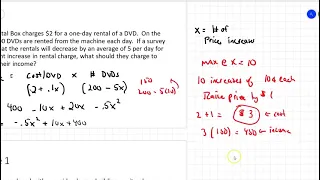 ntal Box charges $2 for a one-day rental of a DVD. On the
00 DVDs are rented from the machine each day. If a survey
at the rentals will decrease by an average of 5 per day for
nt increase in rental charge, what should they charge to
heir income?
= cost/DVD × # DVDs
(2 + .1x) (200 - 5x)
150
200 - 5(10)
400 - 10x + 20x - .5x²
= -.5x² + 10x + 400
e 1
x = # of
price increases
max @ x = 10
10 increases of 10¢ each
Raise price by $1
2 + 1 = $3 ← cost
3 (150) = 450 ← income